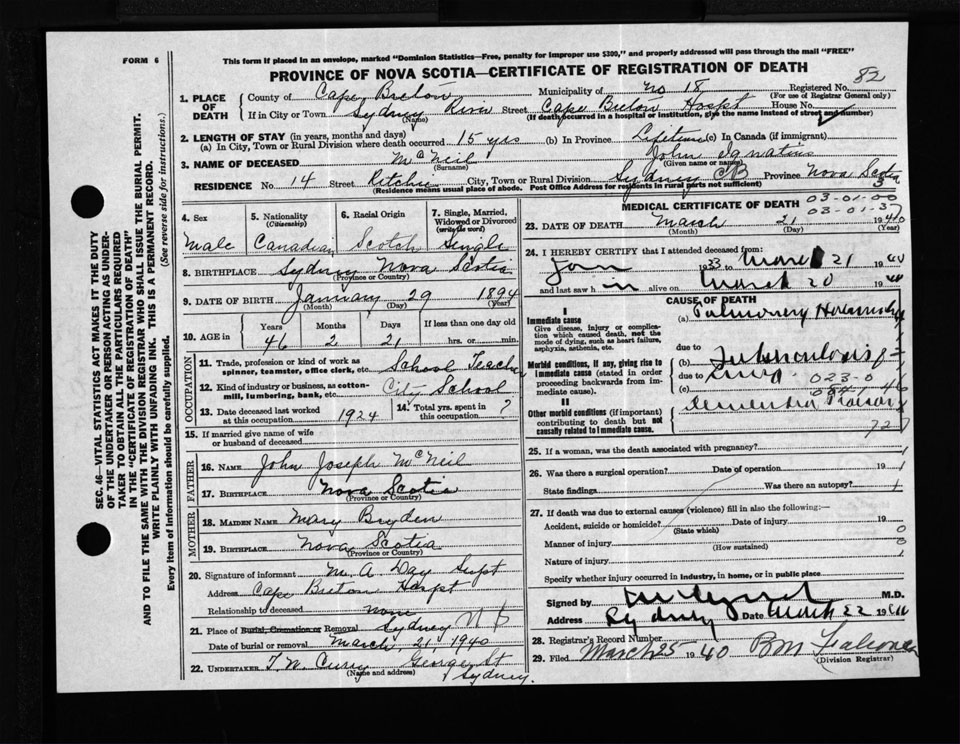 FORM 6
This form if placed in an envelope, marked "Dominion Statistics—Free, penalty for improper use $300," and properly addressed will pass through the mail "FREE"
PROVINCE OF NOVA SCOTIA—CERTIFICATE OF REGISTRATION OF DEATH
82
1. PLACE OF DEATH County of Cape Breton Municipality of No 18 Registered No.
(For use of Registrar General only)
If in City or Town Sydney River Street Cape Breton Hospt House No.
(Name) (If death occurred in a hospital or institution, give the name instead of street and number)
2. LENGTH OF STAY (in years, months and days)
(a) In City, Town or Rural Division where death occurred 15 yrs (b) In Province Lifetime (c) In Canada (if immigrant)
3. NAME OF DECEASED McNeil John Ignatius
(Surname) (Given name or names)
RESIDENCE No. 14 Street Ritchie City, Town or Rural Division Sydney CB Province Nova Scotia
(Residence means usual place of abode. Post Office Address for residents in rural parts not sufficient)
3
4. Sex Male
5. Nationality (Citizenship) Canadian
6. Racial Origin Scotch
7. Single, Married, Widowed or Divorced (write the word) Single
8. BIRTHPLACE Sydney Nova Scotia
(Province or Country)
9. DATE OF BIRTH January 29 1894
(Month) (Day) (Year)
10. AGE in Years Months Days If less than one day old
46 2 21 hrs. or min.
OCCUPATION
11. Trade, profession or kind of work as spinner, teamster, office clerk, etc. School Teacher
12. Kind of industry or business, as cotton-mill, lumbering, bank, etc. City School
13. Date deceased last worked at this occupation 1924
14. Total yrs. spent in this occupation ?
15. If married give name of wife or husband of deceased
FATHER
16. NAME John Joseph McNeil
17. BIRTHPLACE Nova Scotia
(Province or Country)
MOTHER
18. MAIDEN NAME Mary Bryden
19. BIRTHPLACE Nova Scotia
(Province or Country)
20. Signature of informant M A Day Supt
Address Cape Breton Hospt
Relationship to deceased none
21. Place of Burial, Cremation or Removal Sydney N S
Date of burial or removal March, 21, 1940
22. UNDERTAKER T. W. Curry George St
(Name and address)
Sydney.
MEDICAL CERTIFICATE OF DEATH
03-01-00
03-01-37
23. DATE OF DEATH March 21 1940
(Month) (Day) (Year)
24. I HEREBY CERTIFY that I attended deceased from:
Jan 1933 to March 21 1940
and last saw him alive on March 20 1940
CAUSE OF DEATH
I
Immediate cause
Give disease, injury or complication which caused death, not the mode of dying, such as heart failure, asphyxia, asthenia, etc.
(a) Pulmonary
Morbid conditions, if any, giving rise to immediate cause (stated in order proceeding backwards from immediate cause).
due to
(b) Tuberculosis of
due to
(c)
023-0
46
II
Other morbid conditions (if important) contributing to death but not causally related to immediate cause.
Dementia Praecox
727
25. If a woman, was the death associated with pregnancy?
26. Was there a surgical operation? Date of operation 19
State findings Was there an autopsy?
27. If death was due to external causes (violence) fill in also the following:—
Accident, suicide or homicide? Date of injury 19
(State which)
Manner of injury
(How sustained)
Nature of injury
Specify whether injury occurred in industry, in home, or in public place
Signed by M.D.
Address Sydney Date March 22 1940
28. Registrar's Record Number
29. Filed March 25 1940
(Division Registrar)
SEC. 46—VITAL STATISTICS ACT MAKES IT THE DUTY
OF THE UNDERTAKER OR PERSON ACTING AS UNDERTAKER TO OBTAIN ALL THE PARTICULARS REQUIRED
IN THE "CERTIFICATE OF REGISTRATION OF DEATH"
AND TO FILE THE SAME WITH THE DIVISION REGISTRAR WHO SHALL ISSUE THE BURIAL PERMIT.
WRITE PLAINLY WITH UNFADING INK. THIS IS A PERMANENT RECORD.
Every item of information should be carefully supplied. (See reverse side for instructions.)